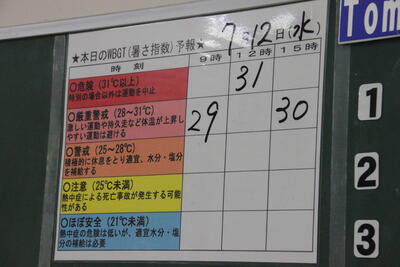 Tom
★本日のWBGT(暑さ指数)予報★ 7月12日(水)
時刻 9時 12時 15時
○危険(31℃以上)
特別の場合以外は運動を中止
31
○厳重警戒(28～31℃)
激しい運動や持久走など体温が上昇し
やすい運動は避ける
29 30
○警戒(25～28℃)
積極的に休息をとり適宜、水分・塩分
を補給する
○注意(25℃未満)
熱中症による死亡事故が発生する可能
性がある
○ほぼ安全(21℃未満)
熱中症の危険は低いが、適宜水分・塩
分の補給は必要
1
2
3